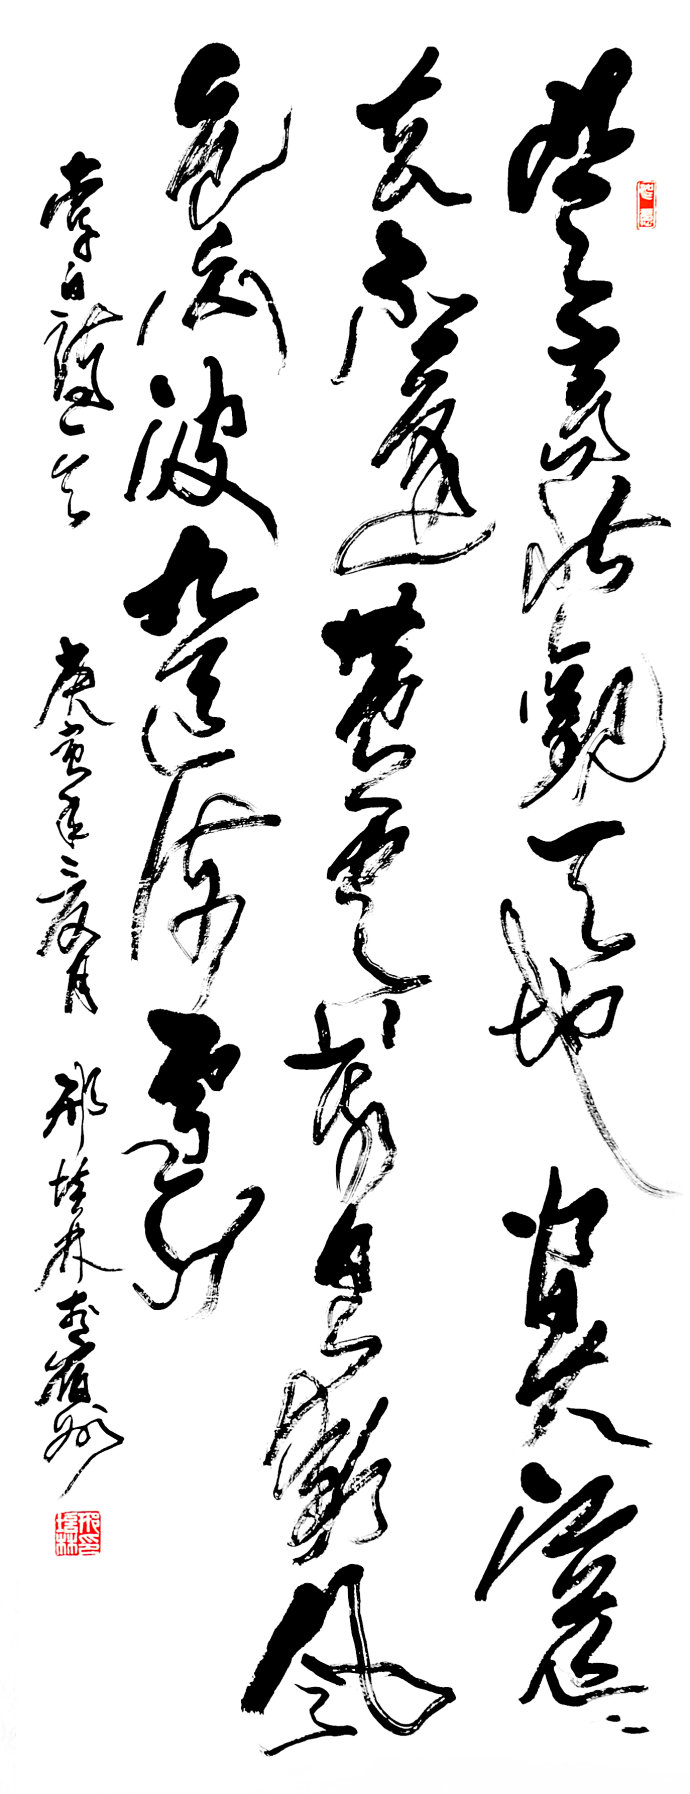 登高壮觀天地間大江茫々
去不還黄雲萬里動風
色白波九道流雪山
李白詩一首 庚寅年 月 邢培林書宿州
邢培林印